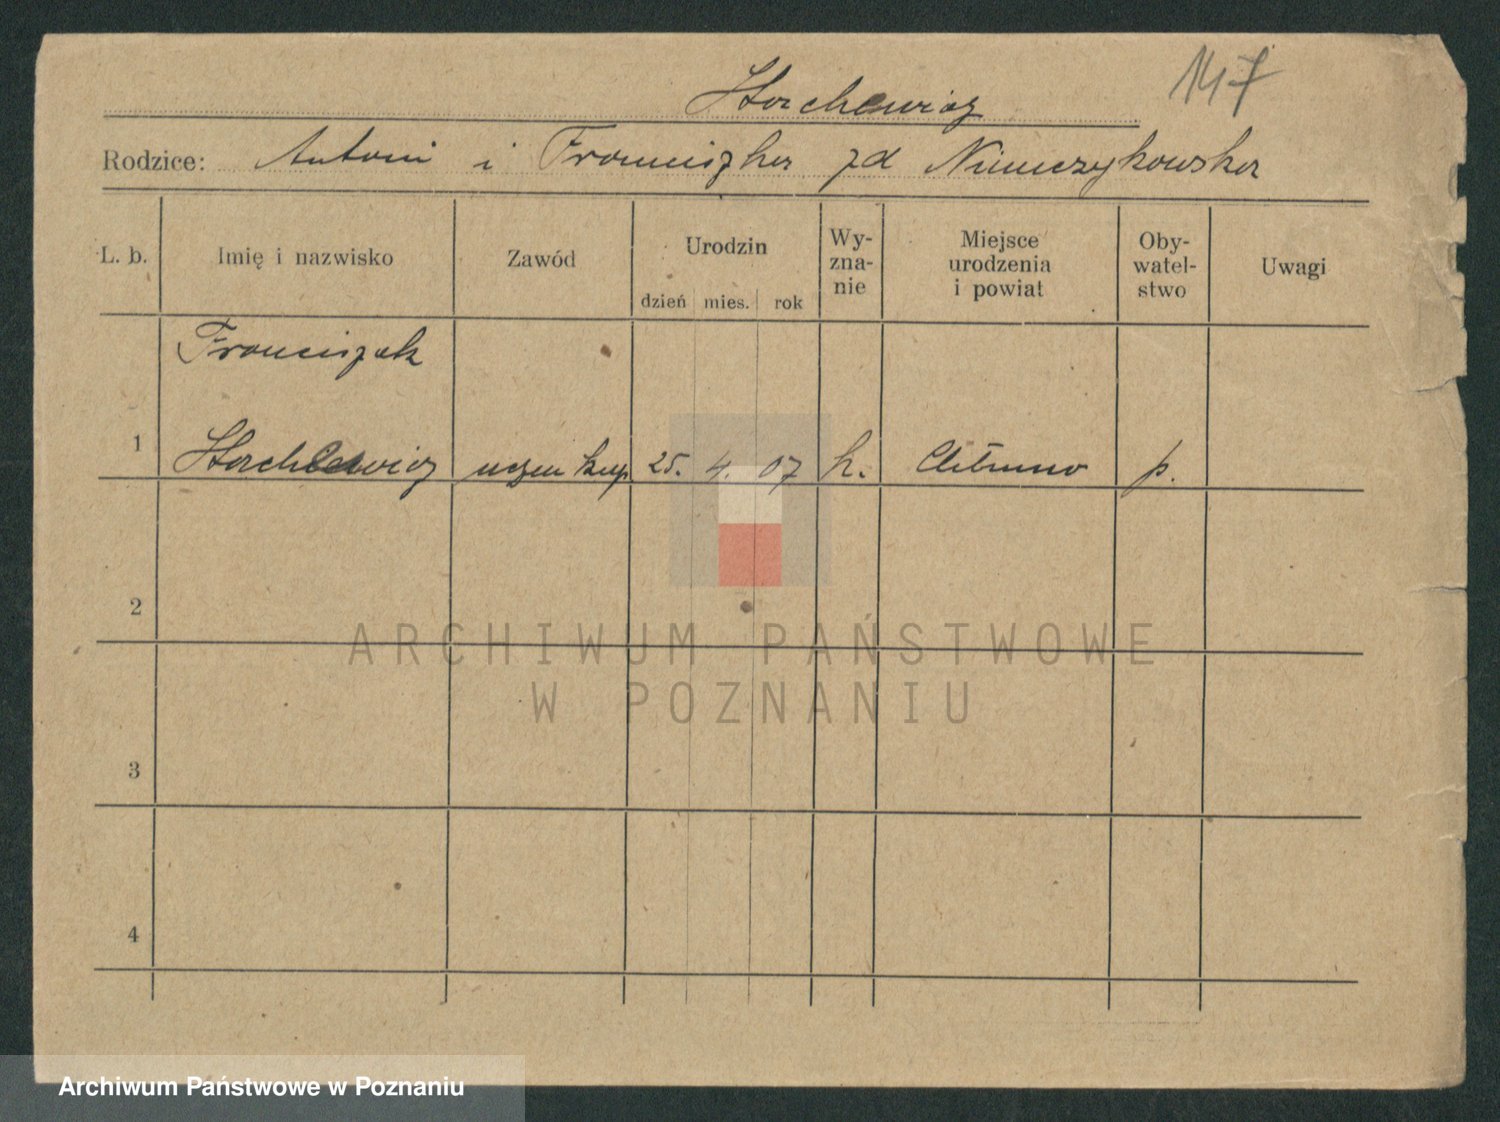 147
Horchlewicz
Rodzice: Antoni i Franciszka zd Niemczykowska
L. b. Imię i nazwisko Zawód Urodzin dzień mies. rok Wy-zna-nie Miejsce urodzenia i powiat Oby-watel-stwo Uwagi
Franciszek
1 Horchlewicz uczeń kup. 25. 4. 07 k. p.
2
3
4
ARCHIWUM PAŃSTWOWE
W POZNANIU
Archiwum Państwowe w Poznaniu